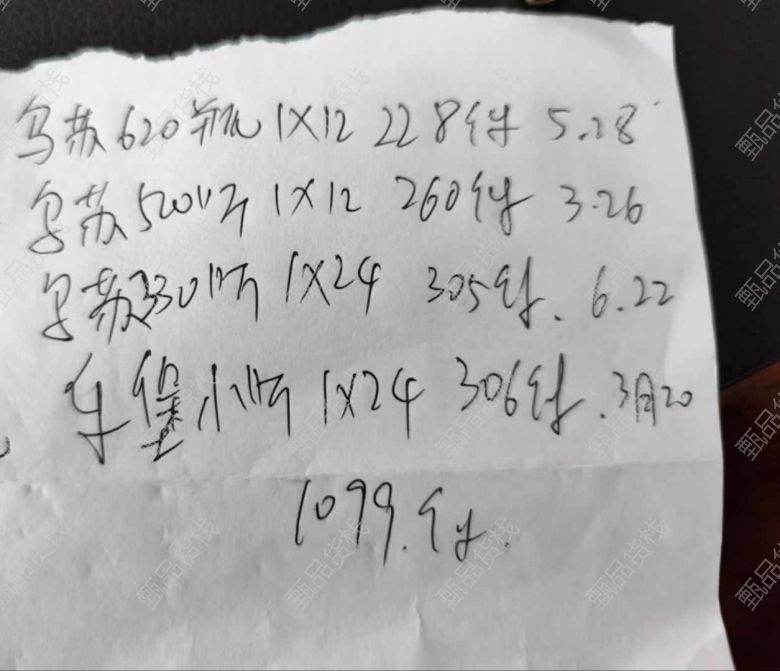 乌苏620瓶 1X12 228件 5.28
乌苏500听 1X12 260件 3.26
乌苏330听 1X24 305件. 6.22
乐堡小听 1X24 306件. 3月20
1099.件.
甄品货栈